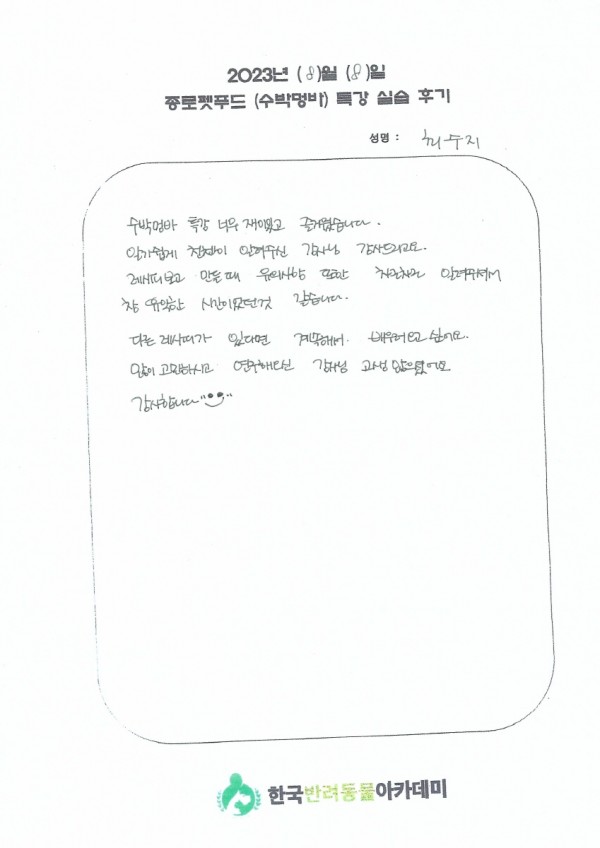 2023년 (8)월 (8)일
종로펫푸드 (수박멍바) 특강 실습 후기
성명 : 최수지
수박멍바 특강 너무 재밌었고 즐거웠습니다.
알기쉽게 천천히 알려주신 강사님 감사드리고요.
레시피보고 만들때 유의사항 또한 차근차근 알려주셔서
참 유익한 시간이였던것 같습니다.
다른 레시피가 있다면 계속해서 배우러오고 싶어요.
많이 고민하시고 연구해오신 강사님 고생 많으셨어요
감사합니다
한국반려동물아카데미